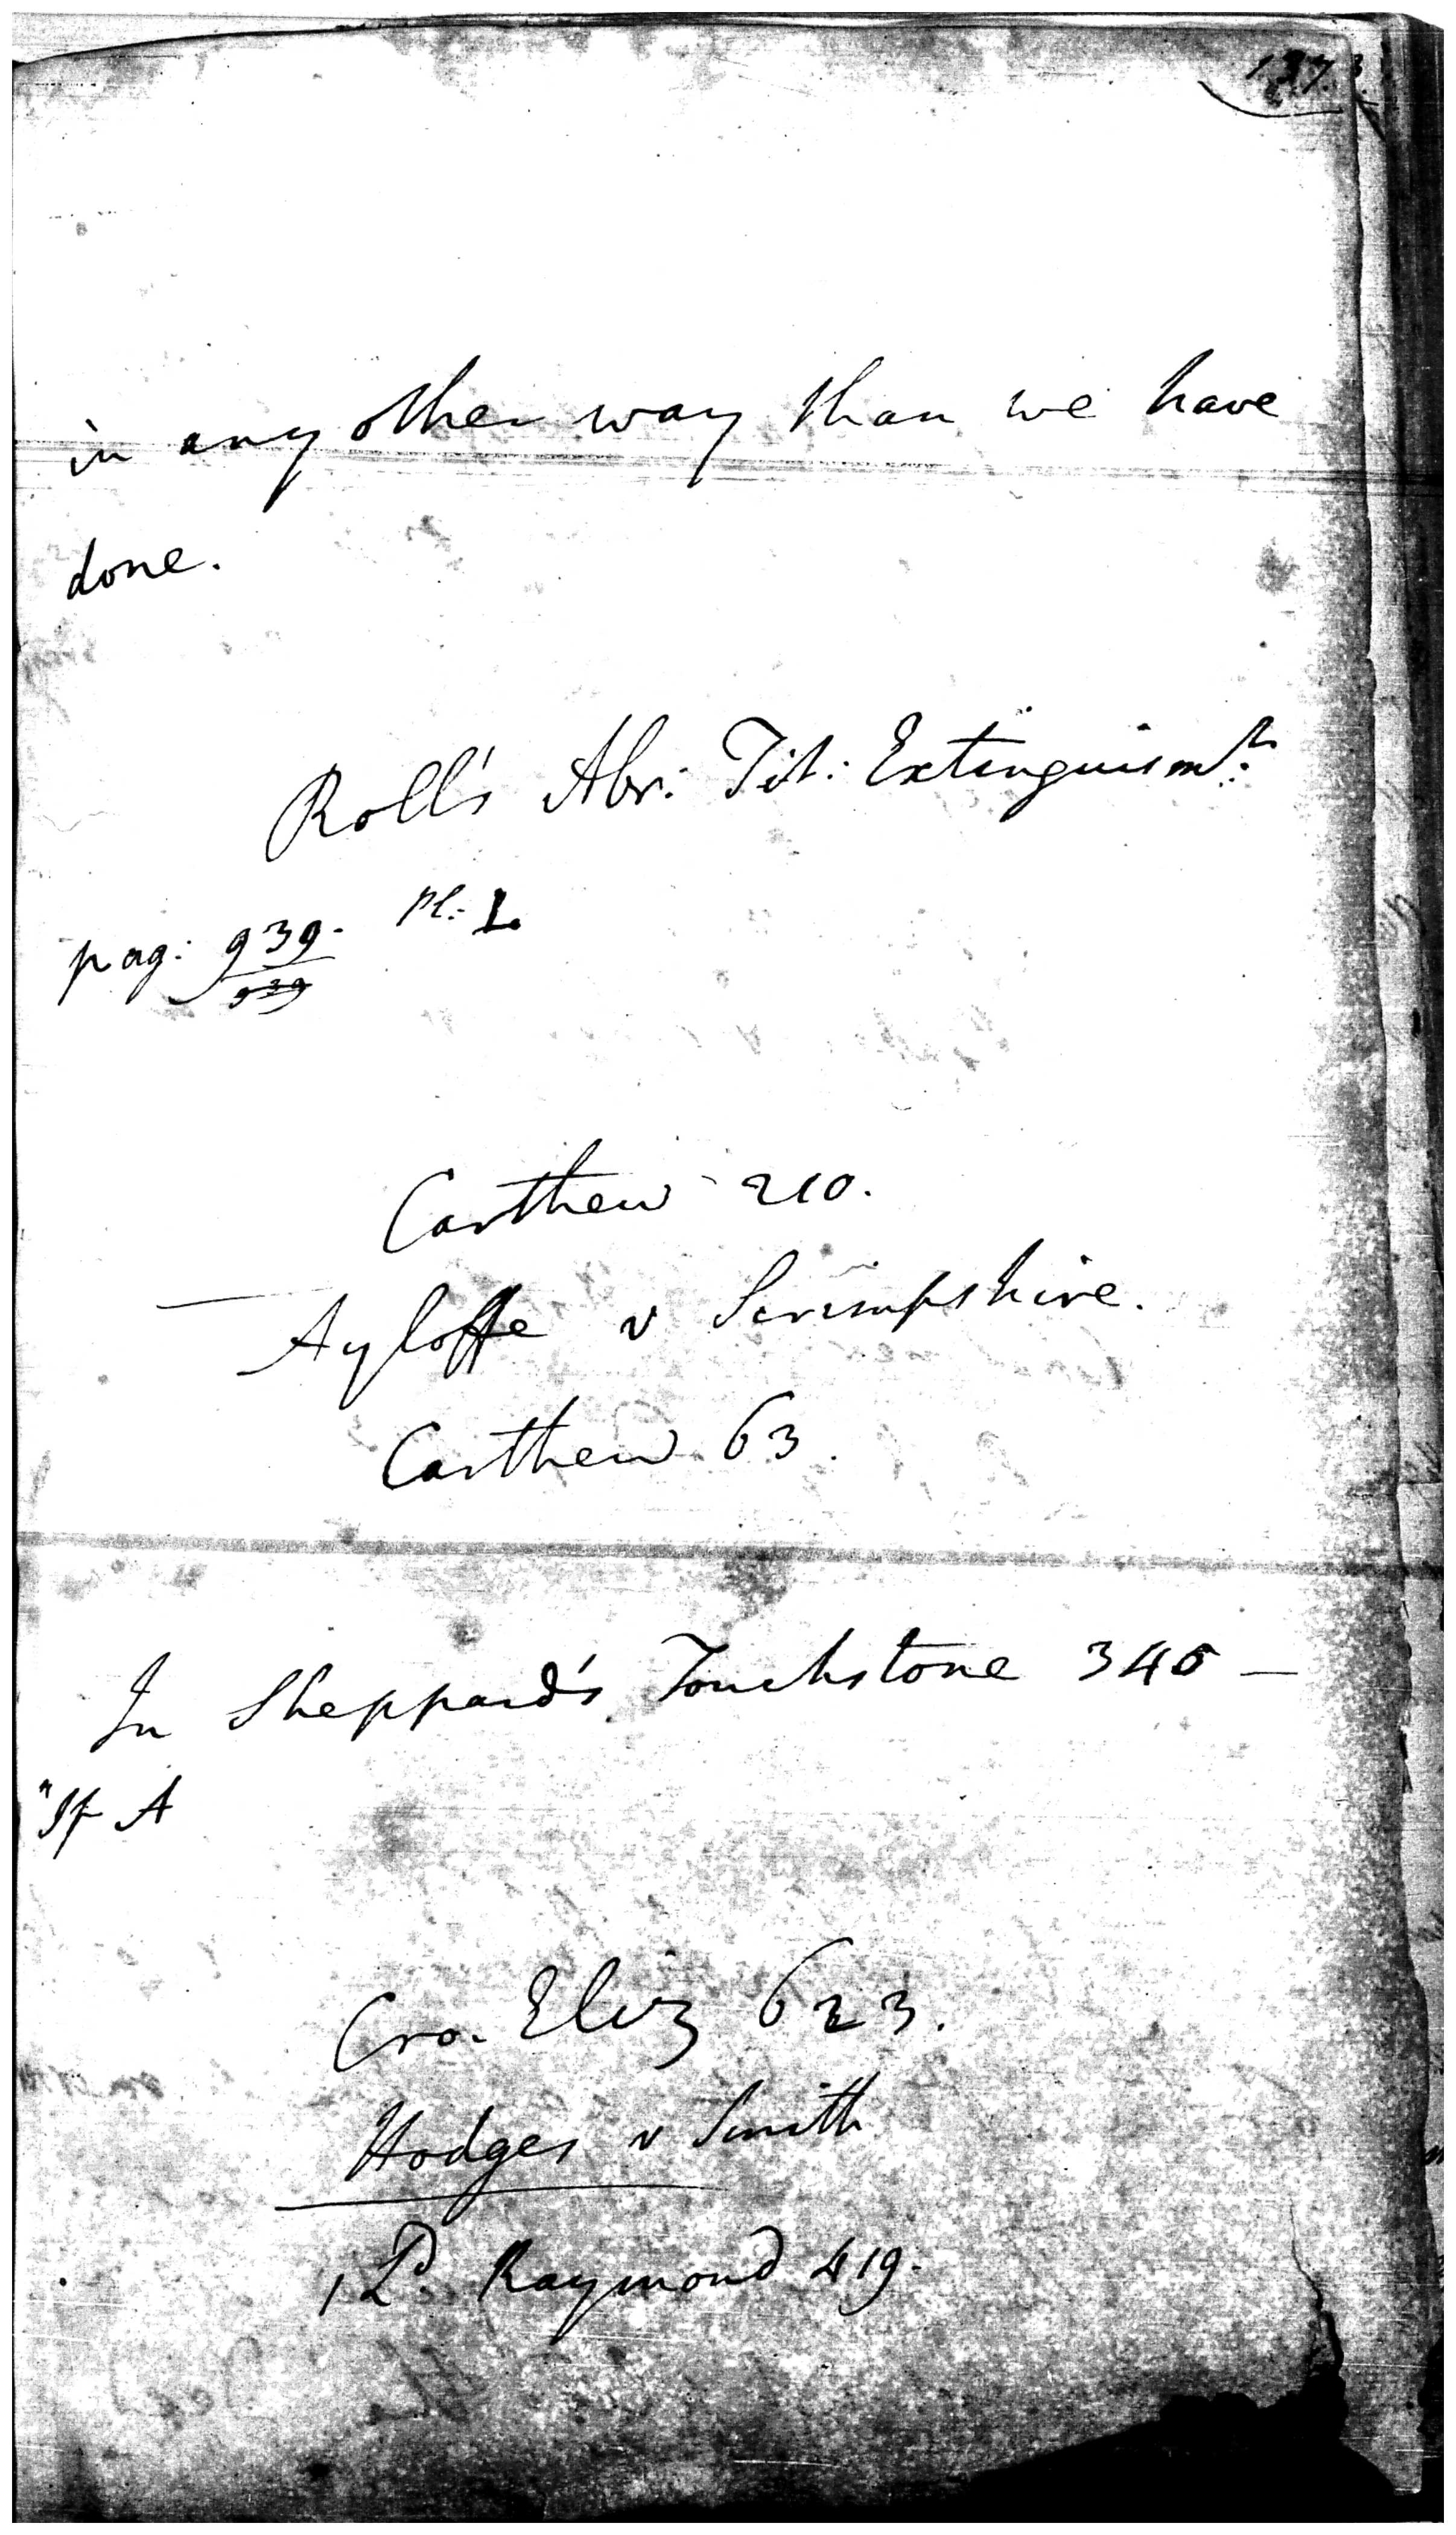 137.
in any other way than we have
done.
Roll's Abr: Tit: Extinguism:t
pag: 939. pl: 1.
939
Carthew 210.
Ayloffe v Scrimpshire.
Carthew 63.
In Sheppard's Touchstone 345 —
"If A
Cro. Eliz 623.
Hodges v Smith
1 Ld. Raymond 419.